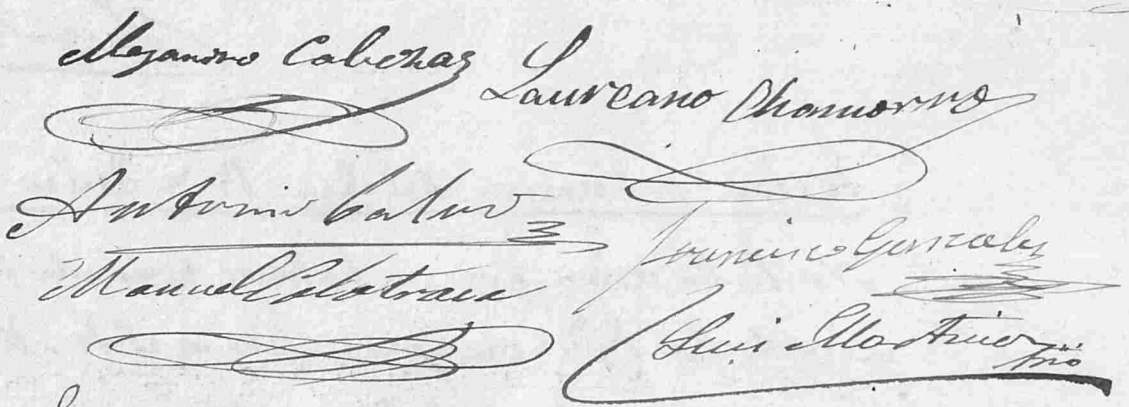 Alejandro Cabezas
Laureano Chamorro
Antonio Calvo
Francisco Gonzalez
Manuel Calatrava
Luis Martino